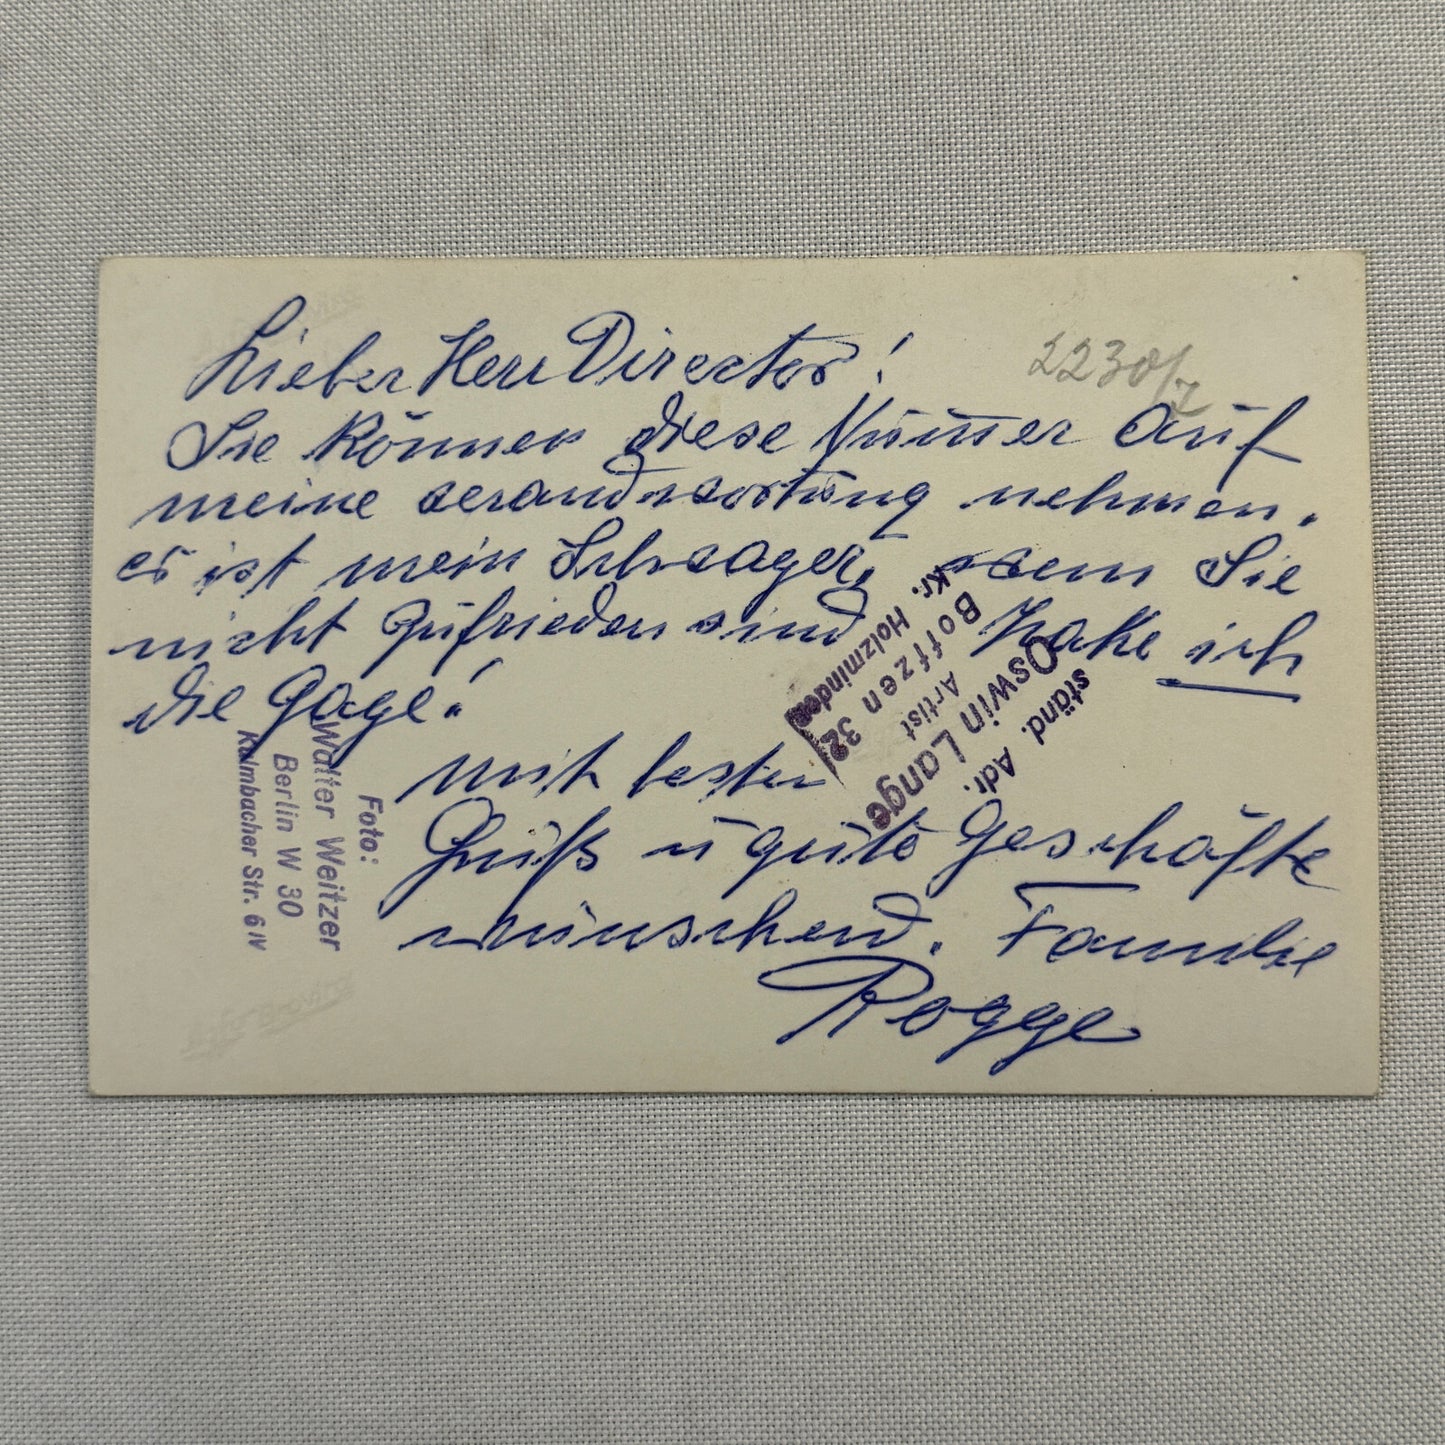 Lieber Herr Director!
2230/7
Sie können diese Nummer auf
meine verandwortung nehmen.
es ist mein Schwager, wenn Sie
nicht zufrieden sind zahle ich
die Gage!
mit besten
Gruß u gute Geschäfte
wünschend. Familie
Rogge
ständ. Adr.
Oswin Lange
Artist
Boffzen 32
Kr. Holzminden
Foto:
Walter Weitzer
Berlin W 30
Kulmbacher Str. 6 IV